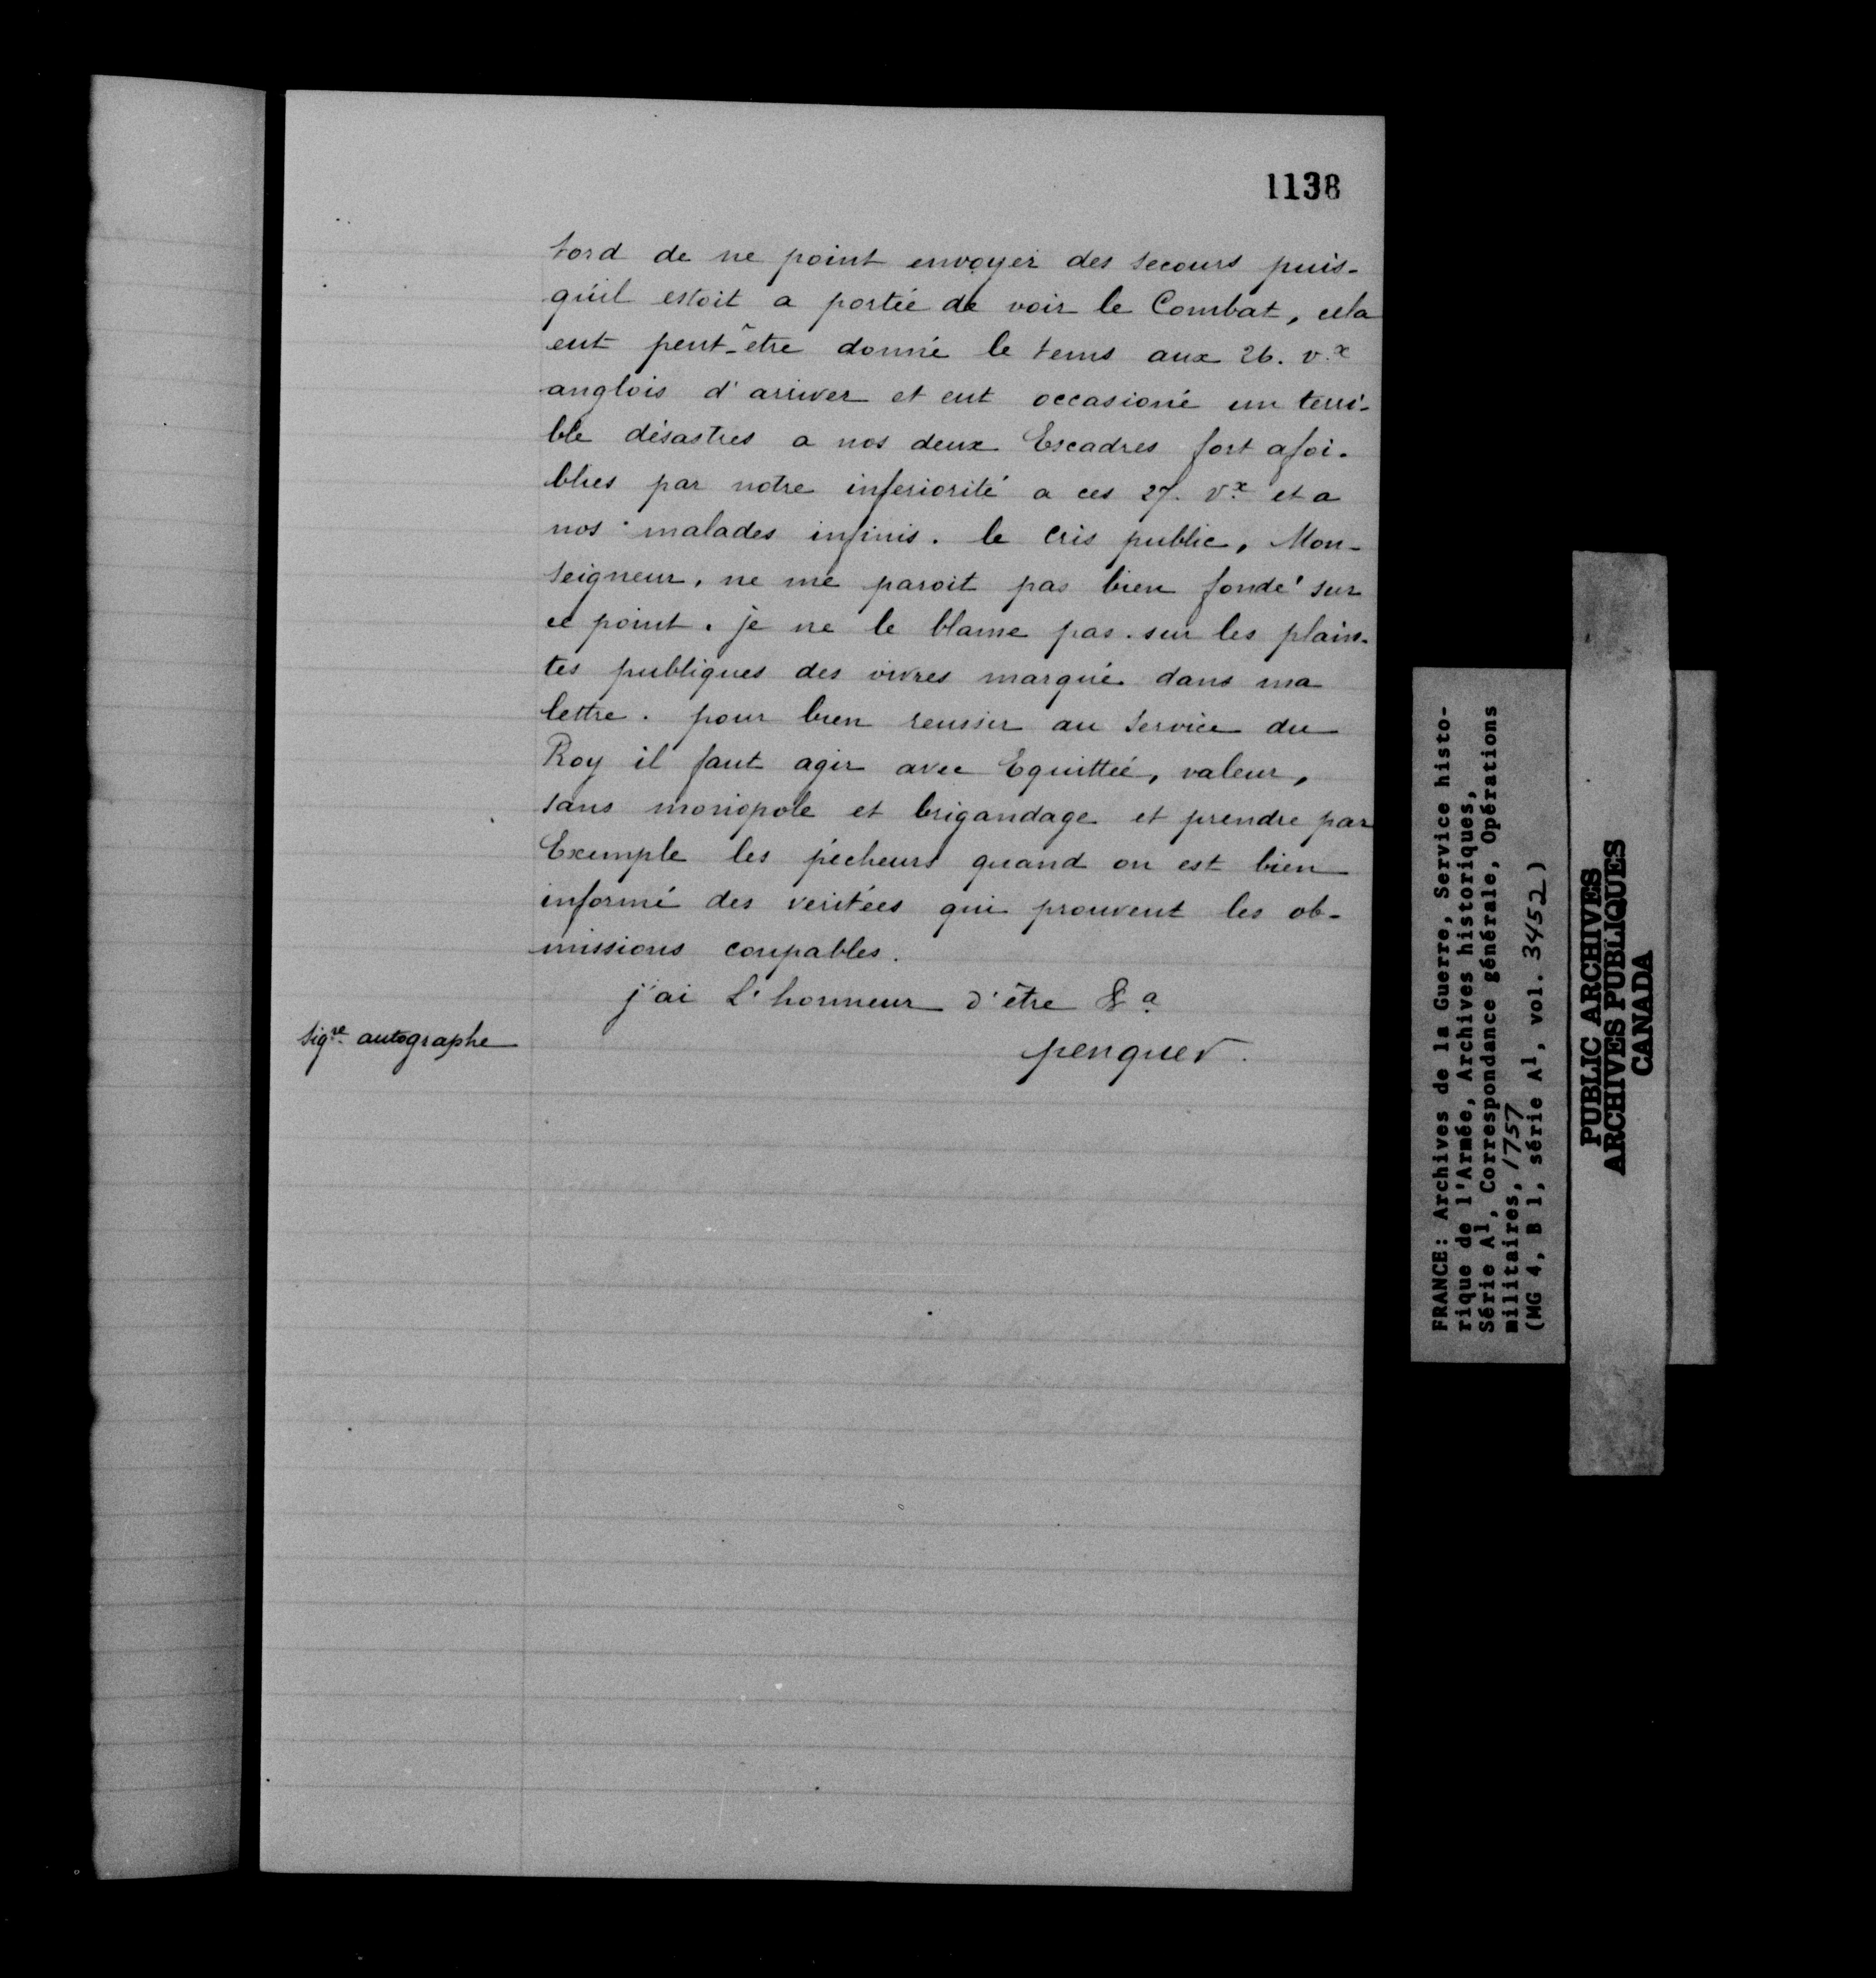 1138
tord de ne point envoyer des secours puis-
qu'il estoit a portée de voir le Combat, cela
eut peut-être donné le tems aux 26. v.x
anglois d'arriver et eut occasioné un terri-
ble désastres a nos deux Escadres fort afoi-
blies par notre inferiorité a ces 27. v.x et a
nos malades infinis. le Cris public, Mon-
seigneur, ne me paroit pas bien fondé sur
ce point. je ne le blame pas sur les plain-
tes publiques des vivres marqué dans ma
lettre. pour bien reussir au Service du
Roy il faut agir avec Equittée, valeur,
sans monopole et brigandage et prendre par
Exemple les pécheurs quand on est bien
informé des veritées qui prouvent les ob-
missions coupables.
j'ai L'honneur d'être &a
sigre autographe
penquer.
FRANCE: Archives de la Guerre, Service histo-
rique de l'Armée, Archives historiques,
Série A1, Correspondance générale, Opérations
militaires, 1757
(MG 4, B 1, série A1, vol. 3452)
PUBLIC ARCHIVES
ARCHIVES PUBLIQUES
CANADA